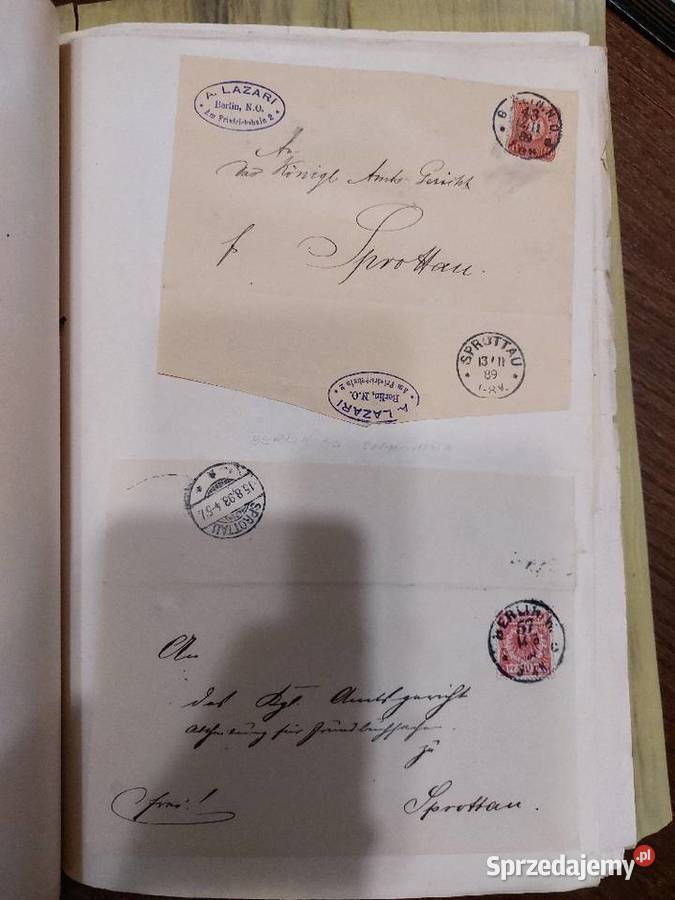 A. LAZARI
Berlin, N.O.
Am Friedrichshain 2
BERLIN, N.O.
43
12/11
89
An
das Königl Amts Gericht
Sprottau.
SPROTTAU
13/11
89
A. LAZARI
Berlin, N.O.
Am Friedrichshain 2
BERLIN
SPROTTAU
15.8.98.4-5
BERLIN, W.
57
An
das Kgl. Amtsgericht
Abtheilung für Grundbuchsachen
zu
frei!
Sprottau.
Sprzedajemy.pl